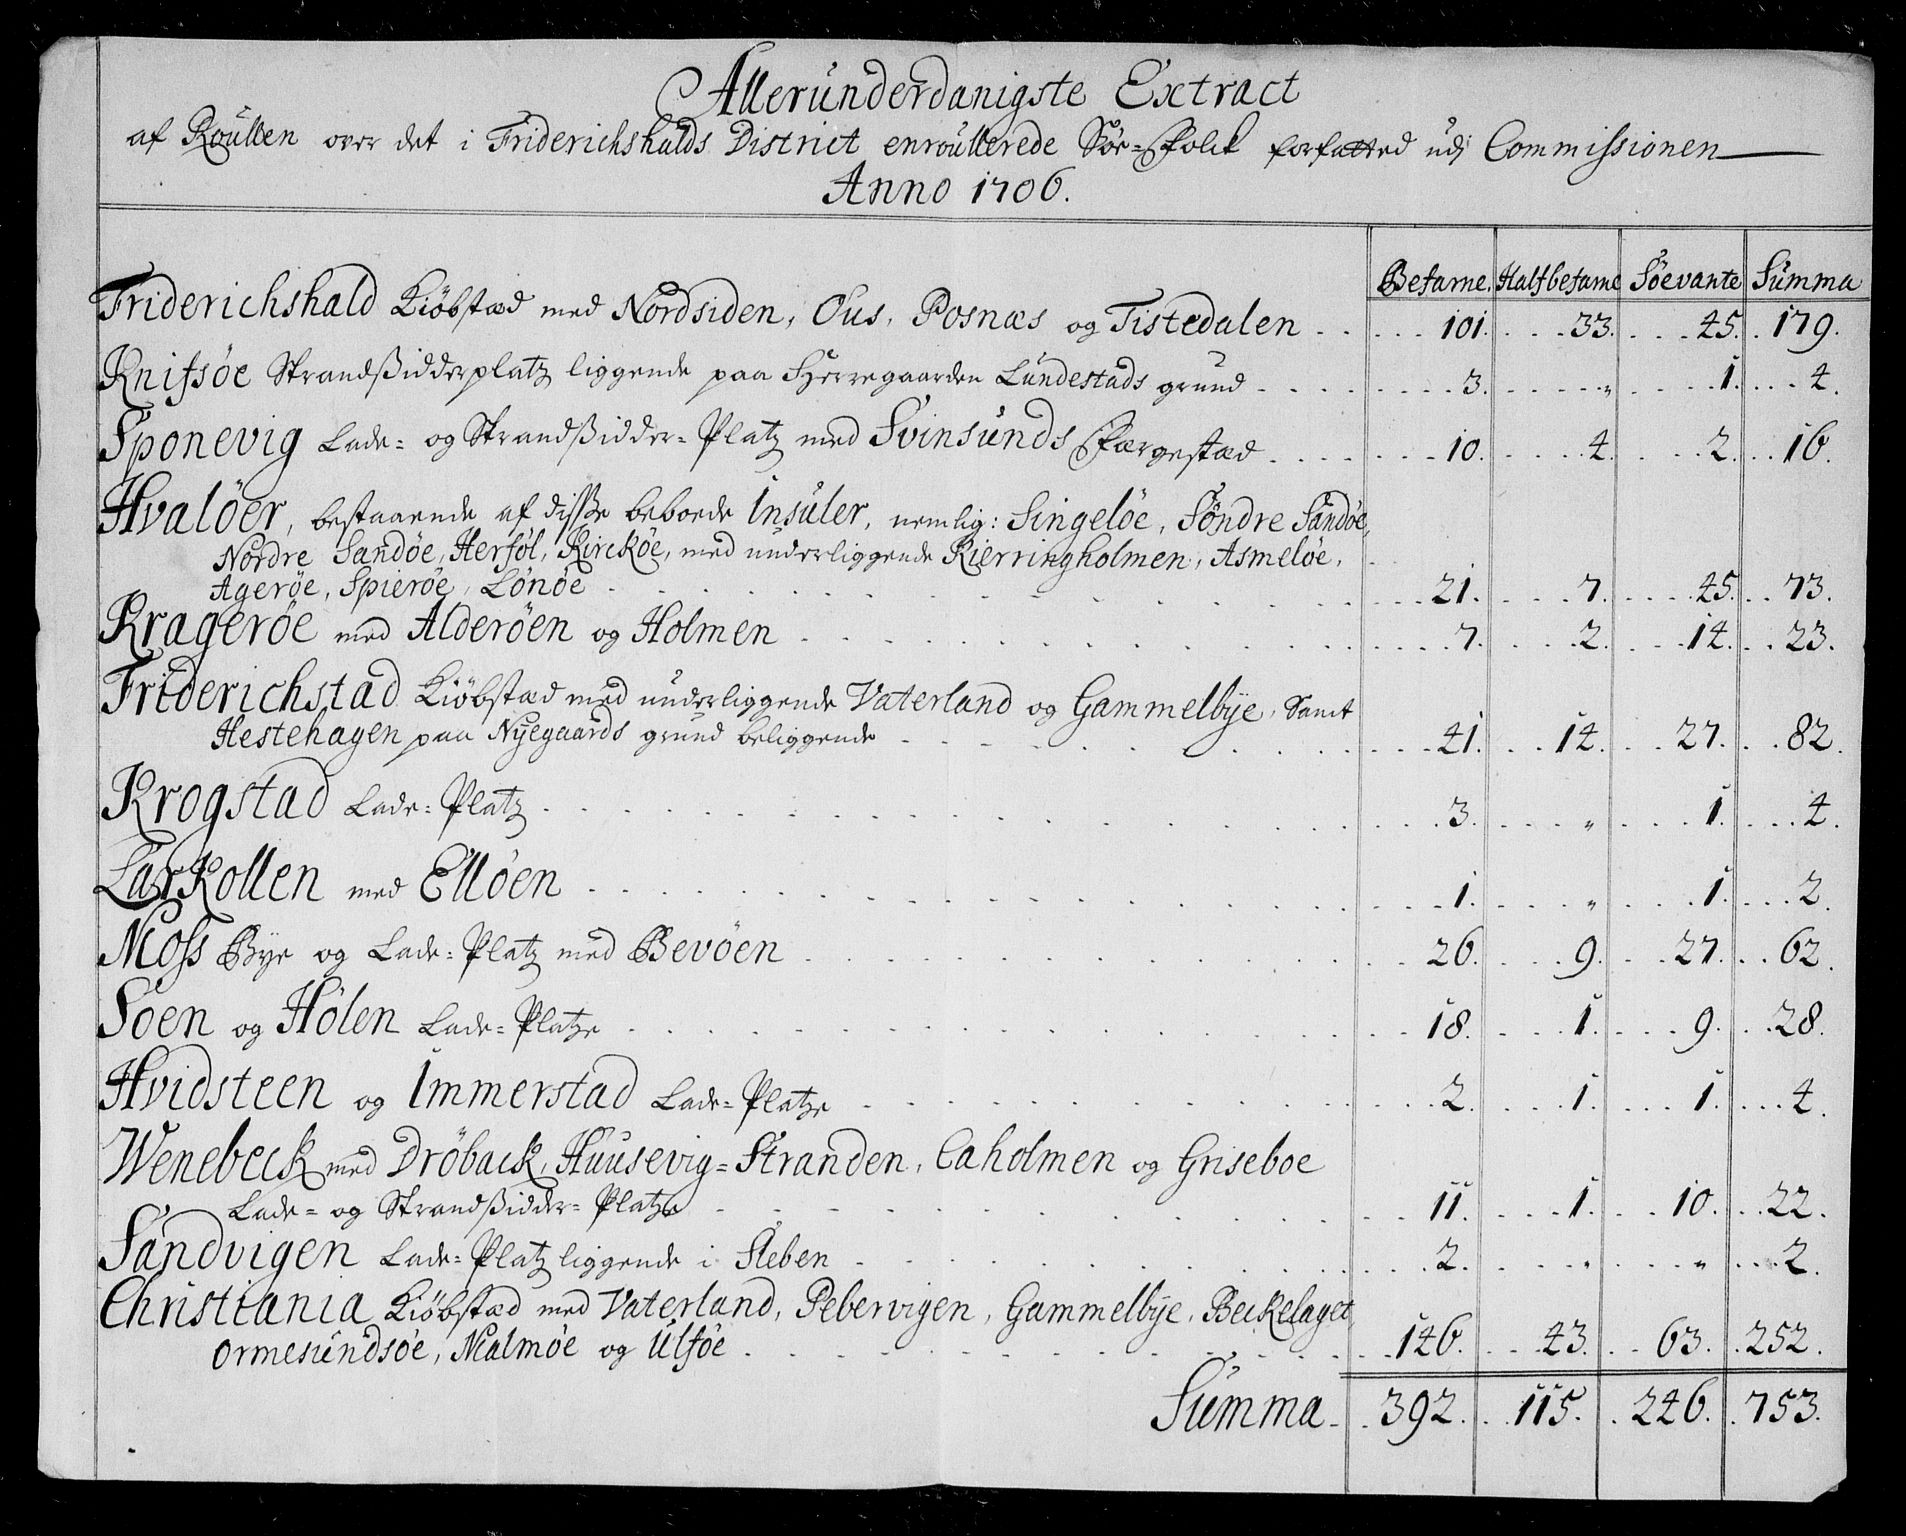 Allerunderdanigste Extract
af Roullen over det i Friderichshalds District enroullerede Söe-Folck forfatted udj Commissionen
Anno 1706.
Befarne. Halfbefarne Söevante Summa
Friderichshald Kiöbstæd med Nordsiden, Ous, Posnæs og Tistedalen 101. 33. 45. 179.
Knifsöe Strandßidderplatz liggende paa Herregaarden Lundestads grund 3. " 1. 4.
Sponevig Lade- og Strandßidder-Platz med Svinsunds Færgestæd 10. 4. 2. 16.
Hvalöer, bestaaende af disße beboede Insuler, nemlig: Singelöe, Söndre Sandöe,
Nordre Sandöe, Herföl, Kirköe, med underliggende Kierringholmen, Asmelöe,
Ageröe, Spieröe, Lönöe 21. 7. 45. 73.
Krageröe med Alderöen og Holmen 7. 2. 14. 23.
Friderichstad Kiöbstæd med underliggende Vaterland og Gammelbÿe, Samt
Hestehagen paa Nÿegaards grund beliggende 41. 14. 27. 82.
Krogstad Lade-Platz 3. " 1. 4.
Larkollen med Ellöen 1. " 1. 2.
Moss Bye og Lade-Platz med Bevöen 26. 9. 27. 62.
Soen og Hölen Lade-Platze 18. 1. 9. 28.
Hvidsteen og Immerstad Lade-Platze 2. 1. 1. 4.
Wenebeck med Dröback, Huusevig-Stranden, Caholmen og Griseboe
Lade- og Strandßidder-Platze 11. 1. 10. 22.
Sandvigen Lade-Platz liggende i Sleben 2. " " 2.
Christiania Kiöbstæd med Vaterland, Pebervigen, Gammelbÿe, Beckelaget
Ormesundsöe, Malmöe og Ulföe 146. 43. 63. 252.
Summa 392. 115. 246. 753.